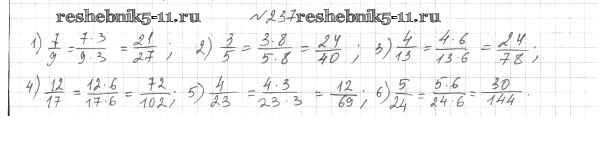 reshebnik5-11.ru №237 reshebnik5-11.ru
1) 7/9 = 7·3/9·3 = 21/27; 2) 3/5 = 3·8/5·8 = 24/40; 3) 4/13 = 4·6/13·6 = 24/78;
4) 12/17 = 12·6/17·6 = 72/102; 5) 4/23 = 4·3/23·3 = 12/69; 6) 5/24 = 5·6/24·6 = 30/144.